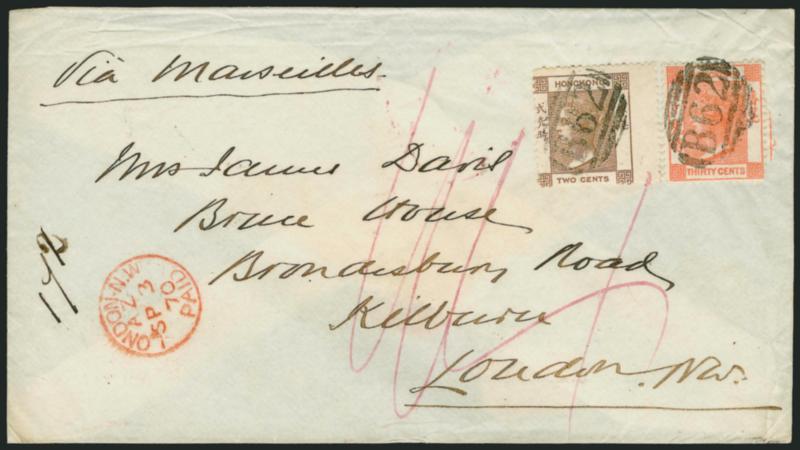 Via Marseilles.
HONGKONG
B62
B62
貳先時
TWO CENTS
THIRTY CENTS
Mrs James David
Bruce House
Brondesbury Road
Kilburn
London. N.W.
LONDON-N.W
PAID
SP 3
70